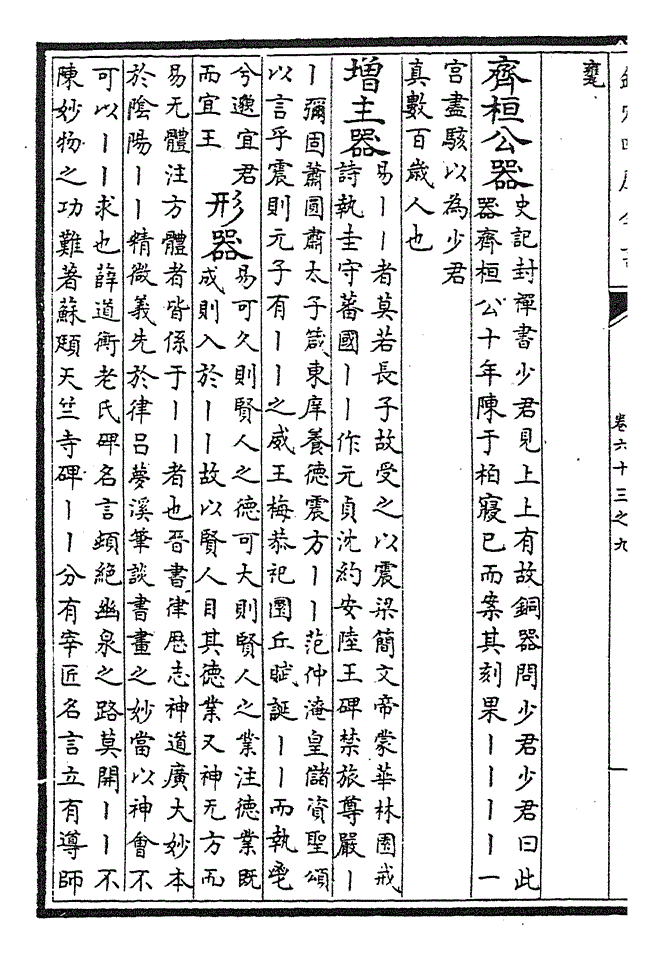 欽定四庫全書
卷六十三之九
甕
齊桓公器史記封禪書少君見上上有故銅器問少君少君曰此
器齊桓公十年陳于柏寢已而案其刻果丨丨丨丨一
宮盡駭以為少君
真數百歲人也
增主器易丨丨者莫若長子故受之以震梁簡文帝蒙華林園戒
詩執圭守蕃國丨丨作元貞沈約安陸王碑禁旅尊嚴丨
丨彌固蕭圓肅太子箴東庠養德震方丨丨范仲淹皇儲資聖頌
以言乎震則元子有丨丨之威王梅恭祀圜丘賦誕丨丨而執鬯
兮邈宜君
而宜王
形器易可久則賢人之德可大則賢人之業注德業既
成則入於丨丨故以賢人目其德業又神无方而
易无體注方體者皆係于丨丨者也晉書律歴志神道廣大妙本
於陰陽丨丨精微義先於律吕夢溪筆談書畫之妙當以神會不
可以丨丨求也薛道衡老氏碑名言頓絶幽泉之路莫開丨丨不
陳妙物之功難著蘇頲天竺寺碑丨丨分有宰匠名言立有導師